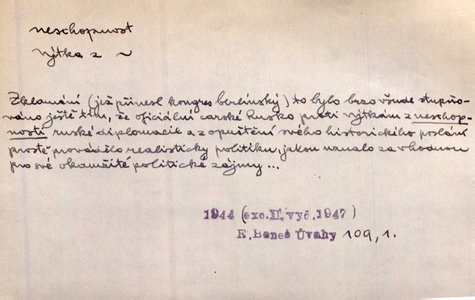 neschopnost
výtka z ~
Zklamání (jež přinesl kongres berlínský) to bylo brzo všude stupňo-
váno ještě tím, že oficiální carské Rusko proti výtkám z neschop-
nosti ruské diplomacie a z opuštění svého historického poslání
prostě provádělo realisticky politiku, jakou uznalo za vhodnou
pro své okamžité politické zájmy...
1944 (exc.II.vyd.1947)
E.Beneš Úvahy 109,1.